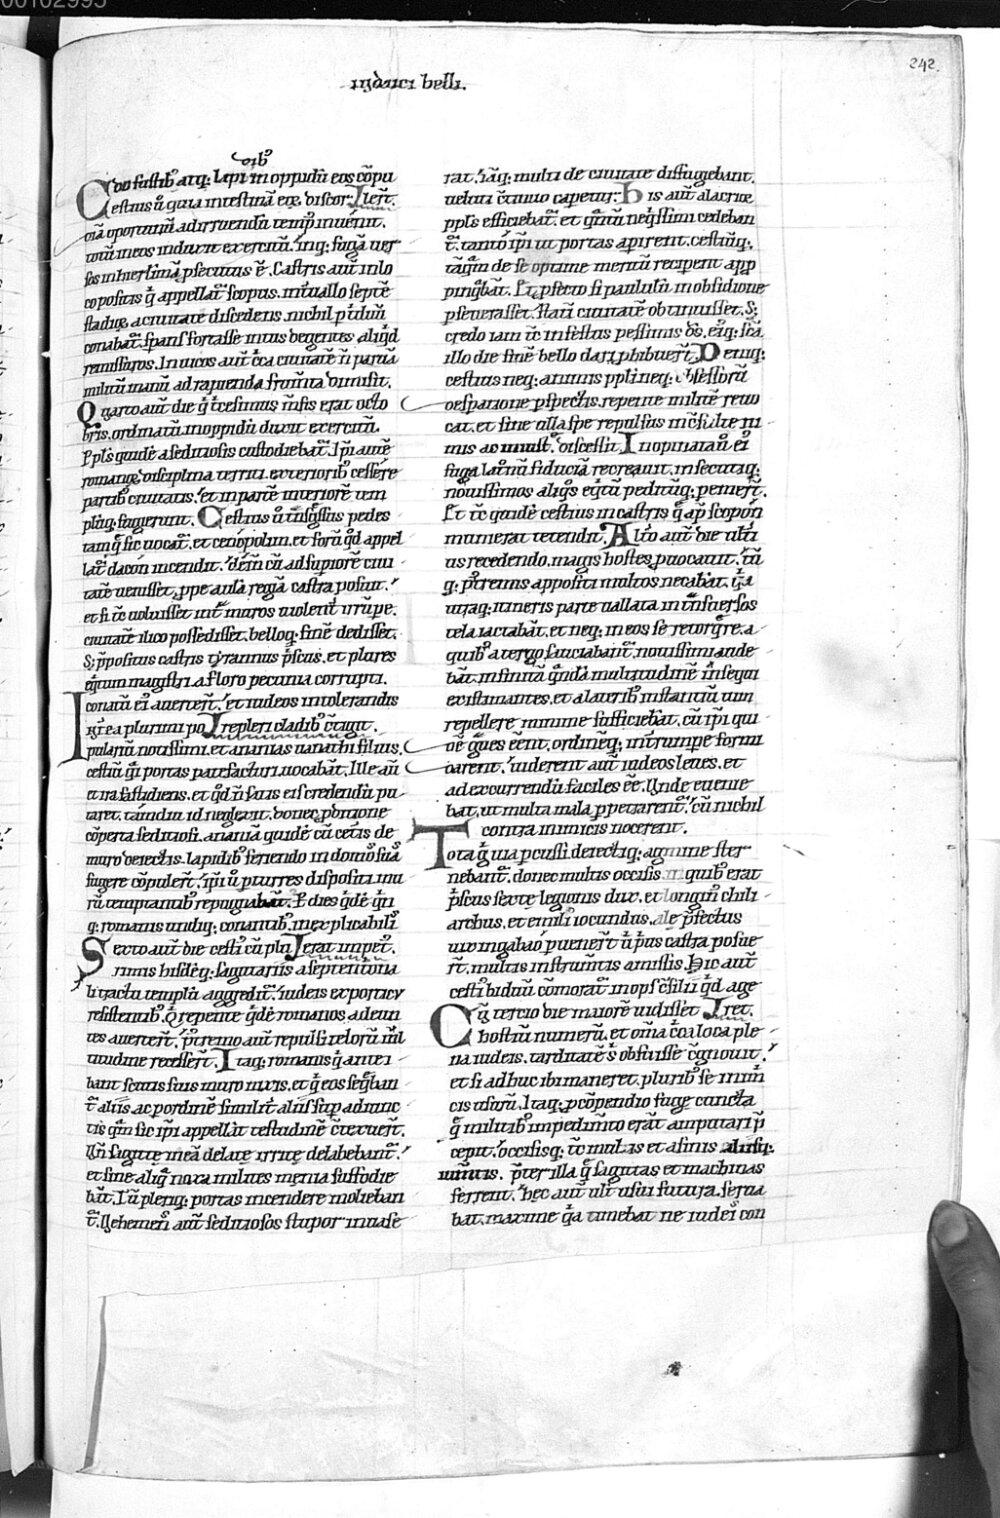 00102995
242.
iudaici belli.
dib᷒
do fustib᷒ atq; lapi in oppidū eos cōpu
Cestius ū̓ quia intestinā eoꝝ discor lert̄.
diā oportunū adirruendū temp᷒ inuenit.
totū in eos induxit exercitū. inq; fugā uer
sos in hierlimā ꝑsecutus ē. Castris aut̄ in lo
co positis q̓ appellat᷑ scopus. int̓uallo septē
stadiis a ciuitate discedens. nichil p̓t̓duū
conabat᷑. sp̄ans fortasse intus degentes aliq̓d
remissuros. In uicos aut̄ c̓ca ciuitatē ñ paruā
militū manū ad rapienda frum̄ta dimisit.
Quarto aut̄ die q̓ t̓cesimus m̄sis erat octo
bris. ordinatū in oppidū duxit exercitū.
Ppl̄s quidē a seditiosis custodiebat᷑. Ip̄i aut̄
romanoꝝ disciplina territi. exteriorib᷒ cessēre
partib᷒ ciuitatis. et in partē interiorē tem
pliq; fugerunt. Cestius ū̓ t̓nsg̓ssus bezes
tam q̓ sic uocat᷑. et cenopolim. et forū q̓d appel
lat᷑ dacōn incendit. dein cū ad supiorē ciui
tatē uenisset. ꝓpe aulā regiā castra posuit.
et si tc̄ uoluisset int̓ muros uiolent̓ irrūpe.
ciuitatē ilico possedisset. belloq; finē dedisset.
S; p̄positus castris tyrannus p̓scus. et plures
equitum magistri a floro pecunia corrupti.
conatū ei᷒ auert̄. et iudeos intolerandis
Int̓ea plurimi po repleri cladib᷒ c̄tigit.
pulariū notissimi. et ananias ionathi filius.
cestiū q̓i portas patefacturi uocabāt. Ille aū
et ira fastidiens. et q̓d ñ satis eis credendū pu
taret. tādiu id neglexit. donec ꝓditione
cōperta seditiosi. ananiā quidē cū cetis de
muro deiectis. lapidib᷒ feriendo in domos suā
fugere cōpulert̄. ip̄i ū̓ p turres dispositi mu
rū temptantib᷒ repugnabāt. Et dies q̓dē q̓n
q; romanis undiq; conantib᷒ inexplicabili᷒
Sexto aut̄ die cesti᷒ cū plu erat impet᷒.
rimis bisdēq; sagittariis a septentriona
li tractu templū aggredit᷑. iudeis ex porticu
resistentib᷒. Q̓ repente q̓dē romanos adeun
tes auertert̄. p̓t̓remo aut̄ repulsi telorū ml̓
titudine recessert̄. Itaq; romani q̓ antei
bant scutis suis muro nixis. et q̓ eos seq̓ban
t᷑ aliis. ac p ordinē similit̓ aliis sup adiunc
tis q̓m sic ip̄i appellāt testudinē c̄texuert̄.
Un̄ sagitte in eā delate irrite delabebant᷑.
et sine aliq̓ noxa milites menia suffodie
bāt. Iā pleriq; portas incendere molieban
t᷑. Uehemens aut̄ seditiosos stupor inuase
rat. Iāq; multi de ciuitate diffugiebant.
uelut c̄tinuo caperetur. His aut̄ alacrior
ppl̄s efficiebat᷑. et q̓ntū neq̓ssimi cedeban
t᷑. tanto ip̄i ut portas apirent. cestiūq;
tāq̓m de se optime meritū reciperent app̄
pinq̓bāt. Et ꝓfecto si paulūlū in obsidione
pseuerasset. statī ciuitatē obtinuisset. S;
credo iam tc̄ infestus pessimis ds̄. eiq; sc̄a
illo die finē bello dari phibuert̄. Deniq;
cestius neq; animis ppli neq; obsessorū
desparatione pspectis. repente militē reuo
cat. et sine ulla spe repulsus in c̄sulte ni
mis ac iniust᷒ discessit. Inopinatā ei᷒
fuga latronū fiduciā recreauit. insecutiq;
nouissimos aliq̓s eq̓tū peditūq; pemert̄.
Et tc̄ quidē cestius in castris q̓ ap̓ scopon
munierat retendit. Altō aut̄ die ulti
us recedendo. magis hostes ꝓuocauit. iā
q; p̓tremis appositi multos necabāt. q̓a
utraq; itineris parte uallata in t̓nsuersos
tela iactabāt. et neq; in eos se retorq̓re. a
quib᷒ a tergo sauciabant᷑. nouissimi aude
bāt. infinitā q̓ndā multitudinē insequi
existimantes. et a laterib᷒ instantiū uim
repellere minime sufficiebāt. cū ip̄i qui
dē graues eent. ordinēq; int̓rumpe formi
darent. uiderent aut̄ iudeos leues. et
ad excurrendū faciles ee᷑. Unde euenie
bat. ut multa mala ppetarent᷑. cū nichil
contra inimicis nocerent.
Tota q̓ uia pcussi deiectiq; agmine ster
nebant᷑. donec multis occisis in quib᷒ erat
p̓scus sexte legionis dux. et longin᷒ chili
archus. et emili᷒ iocundus. ale p̓fectus
uix in gabaō puenert̄. ū̓ p̓us castra posue
rt̄. multis instrum̄tis amissis. Hic aut̄
cesti᷒ biduū cōmorat᷑. inops c̄silii q̓d age
Cū tercio die maiorē uidisset ret.
hostiū numerū. et om̄ia c̓ca loca ple
na iudeis. tarditatē s᷒ obfuisse c̄gnouit.
et si adhuc ibi maneret. plurib᷒ se inim̄
cis usurū. Itaq; p cōpendio fuge cuncta
q̓ militib᷒ impedim̄to erāt amputari p̓
cepit. occisisq; tc̄ mulis et asinis aliisq;
iumt̄is. p̄ter illa q̓ sagittas et machinas
ferrent. hec aut̄ ut ił usui futura serua
bat. maxime q̓a timebat ne iudei con